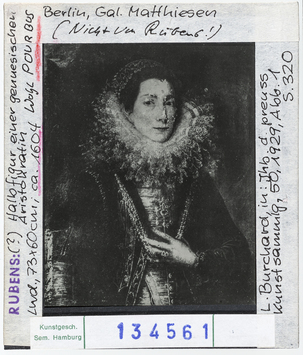 Berlin, Gal. Matthiesen
(Nicht von Rubens!)
RUBENS: (?) Halbfigur einer genuesischen
Aristokratin wohl POURBUS
Lwd, 73x60cm; ca. 1604
L. Burchard in: Jhb. d. preuss.
Kunstsammlg, 50, 1929, Abb. 1
S. 320
Kunstgesch.
Sem. Hamburg
134561